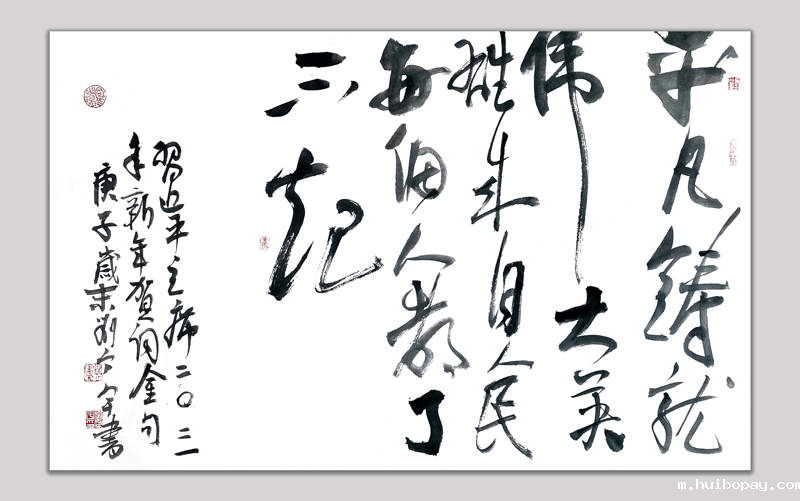 平凡铸就
伟大英
雄来自人民
每個人都了
不起
習近平主席二〇二一
年新年贺词金句
庚子歲末 書
m.huibopay.com